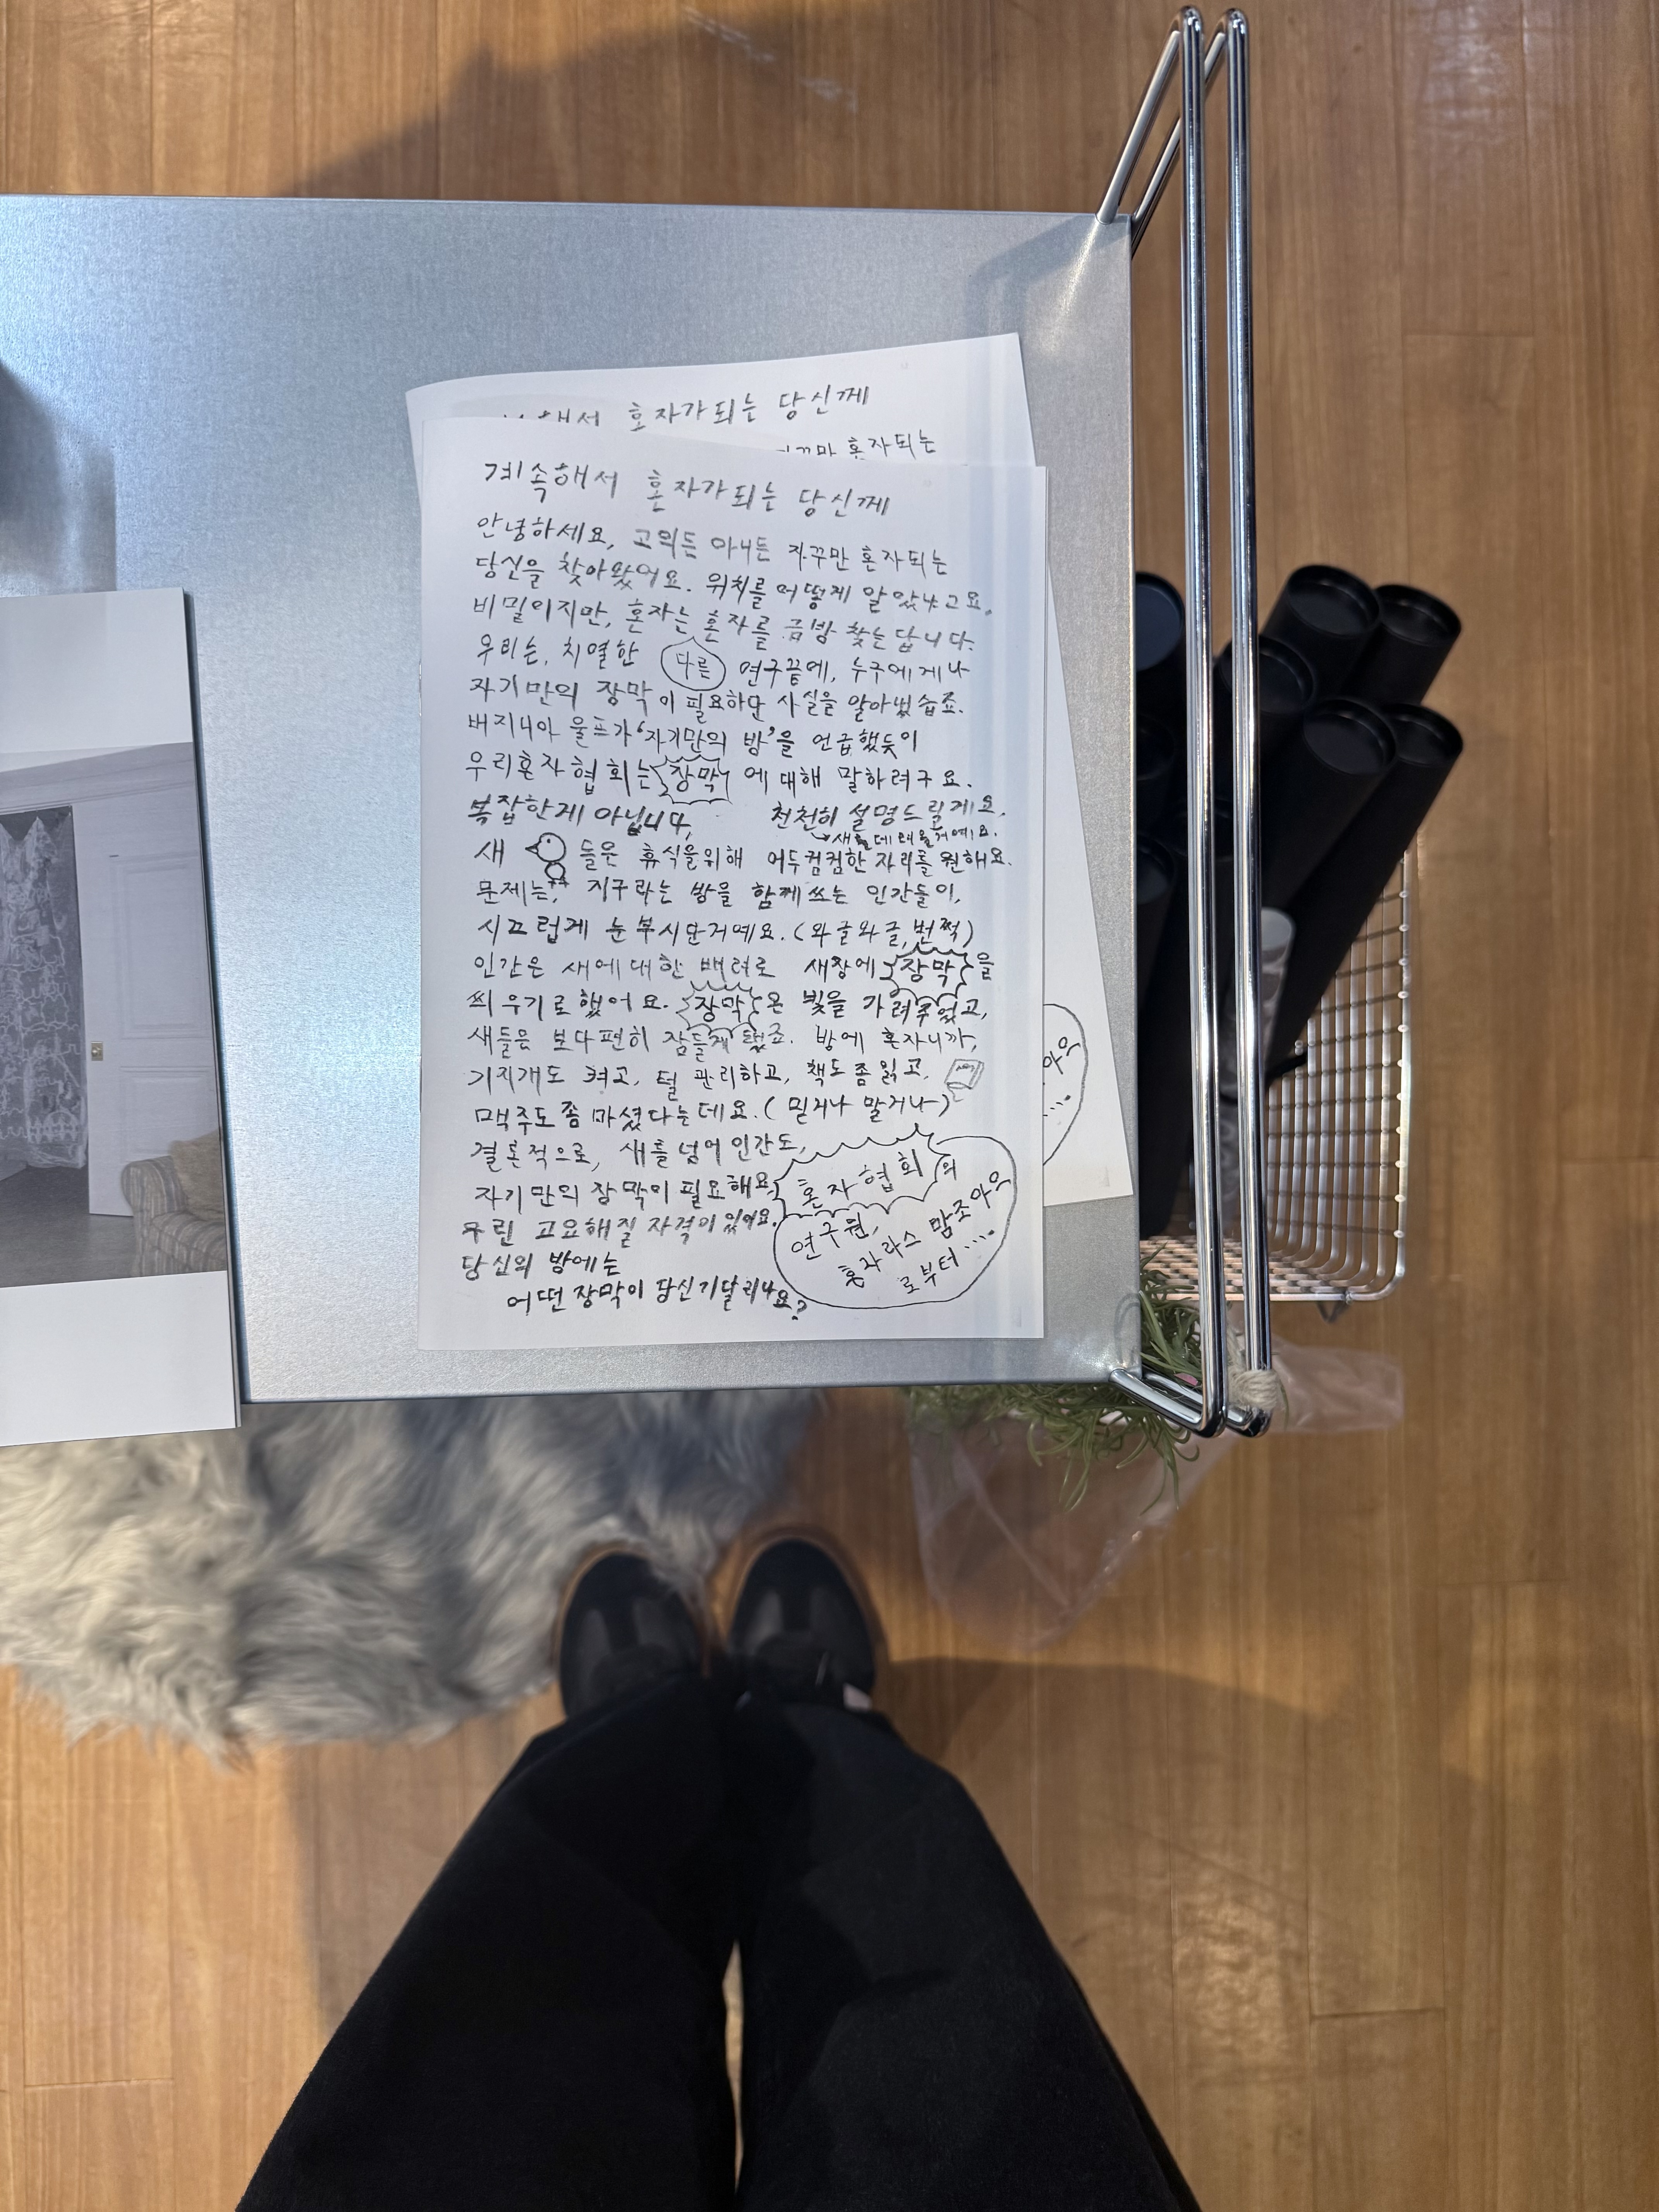 해서 혼자가되는 당신께
꾸만 혼자되는
계속해서 혼자가되는 당신께
안녕하세요, 고의든 아니든 자꾸만 혼자되는
당신을 찾아왔어요. 위치를 어떻게 알았냐고요,
비밀이지만, 혼자는 혼자를 금방 찾는답니다.
우리는, 치열한 다른 연구끝에, 누구에게나
자기만의 장막이 필요하단 사실을 알아냈습죠.
버지니아 울프가 '자기만의 방'을 언급했듯이
우리혼자협회는 장막에 대해 말하려구요.
복잡한게 아닙니다, 천천히 설명드릴게요.
새들은 휴식을위해 어두컴컴한 자리를 원해요.
문제는, 지구라는 방을 함께쓰는 인간들이,
시끄럽게 눈부시단거예요. (와글와글, 번쩍)
인간은 새에대한 배려로 새장에 장막을
씌우기로했어요. 장막은 빛을 가려주었고,
새들은 보다편히 잠들게 됐죠. 방에 혼자니까,
기지개도 켜고, 털 관리하고, 책도좀읽고,
맥주도좀 마셨다는데요. (믿거나 말거나)
결론적으로, 새를 넘어 인간도,
자기만의 장막이 필요해요.
우린 고요해질 자격이 있어요.
당신의 방에는
어떤 장막이 당신기달리나요?
혼자협회의
연구원,
혼자라스 맘조아으
로부터....
아으